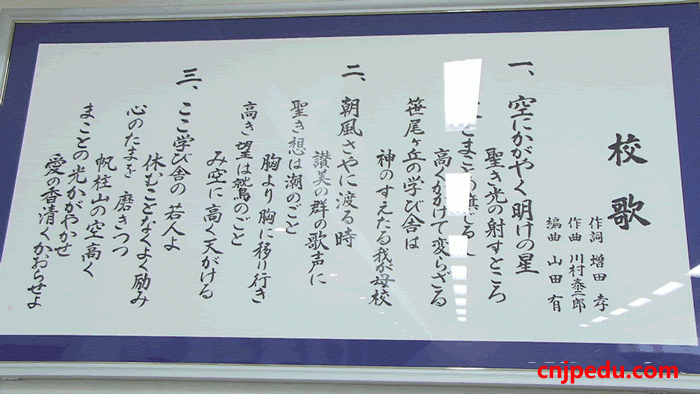 校歌
作詞 増田 孝
作曲 川村泰三郎
編曲 山田 有
一、空にかがやく明けの星
聖き光の射すところ
とまことの旗じるし
高くかかげて変らざる
笹尾ヶ丘の学び舎は
神のすえたる我が母校
二、朝風さやに渡る時
讃美の群の歌声に
聖き想は潮のごと
胸より胸に移り行き
高き望は鷲のごと
み空に高く天がける
三、ここ学び舎の若人よ
休むことなくよく励み
心のたまを磨きつつ
帆柱山の空高く
まことの光かがやかせ
愛の香清くかおらせよ
cnjpedu.com